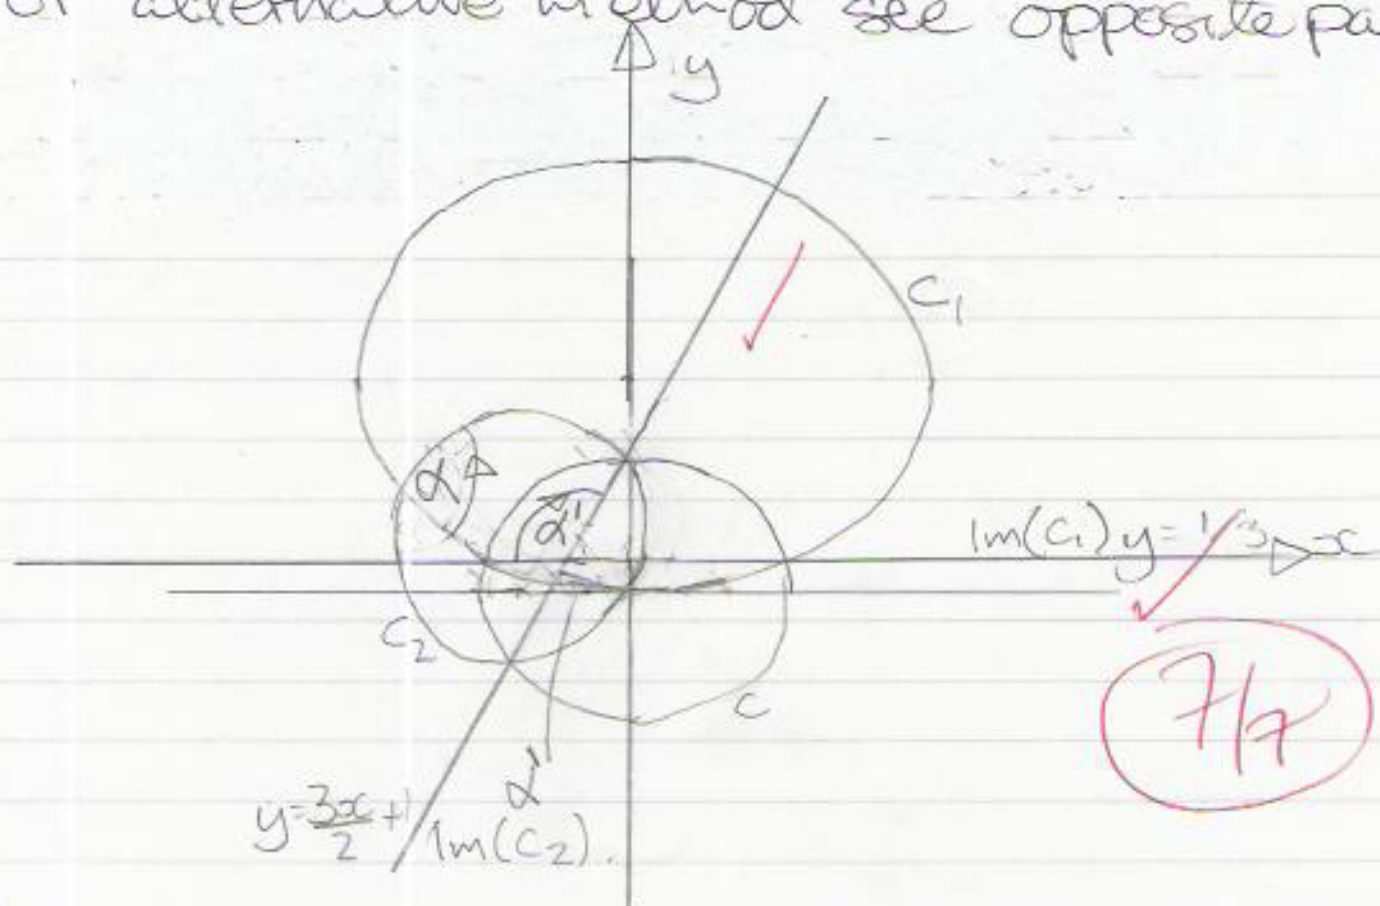 or alternative method see opposite pa
y
C1
α
α'
Im(C1) y=1/3 x
C2
C
α'
y=3x/2+1
Im(C2).
7/7